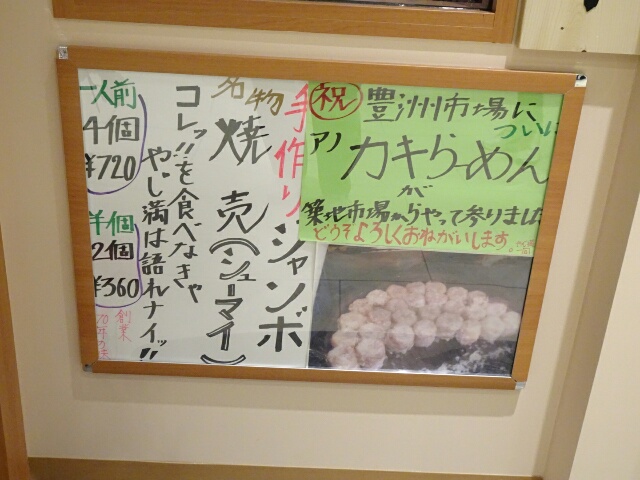 祝 豊洲市場に
ついに
アノ カキらーめん
が
築地市場からやって参りました
どうぞよろしくおねがいします。
手作りジャンボ
名物 焼売(シューマイ)
コレッ!!を食べなきゃ
やじ満は語れナイッ!!
一人前
4個
¥720
半個
2個
¥360
創業